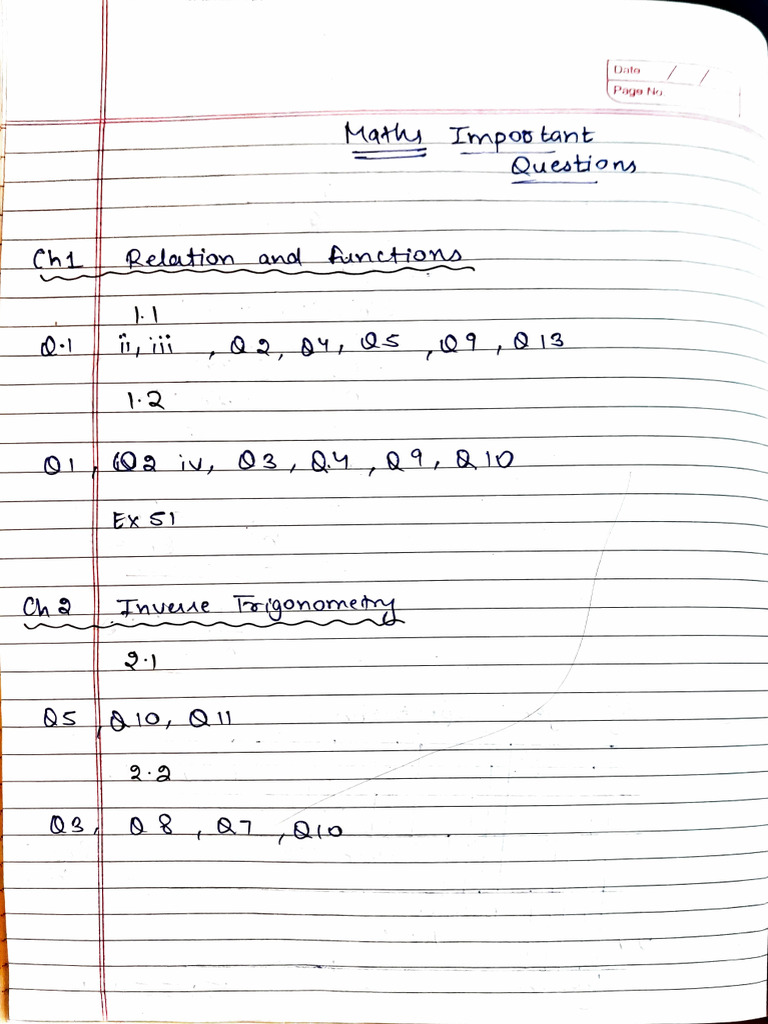 Date / /
Page No.
Maths Important
Questions
Ch 1 Relation and functions
1.1
Q.1 ii, iii , Q2, Q4, Q5 , Q9 , Q13
1.2
Q1 , Q2 iv, Q3, Q.4 , Q9, Q10
Ex 51
Ch 2 Inverse Trigonometry
2.1
Q5 , Q10, Q11
2.2
Q3, Q8 , Q7 , Q10